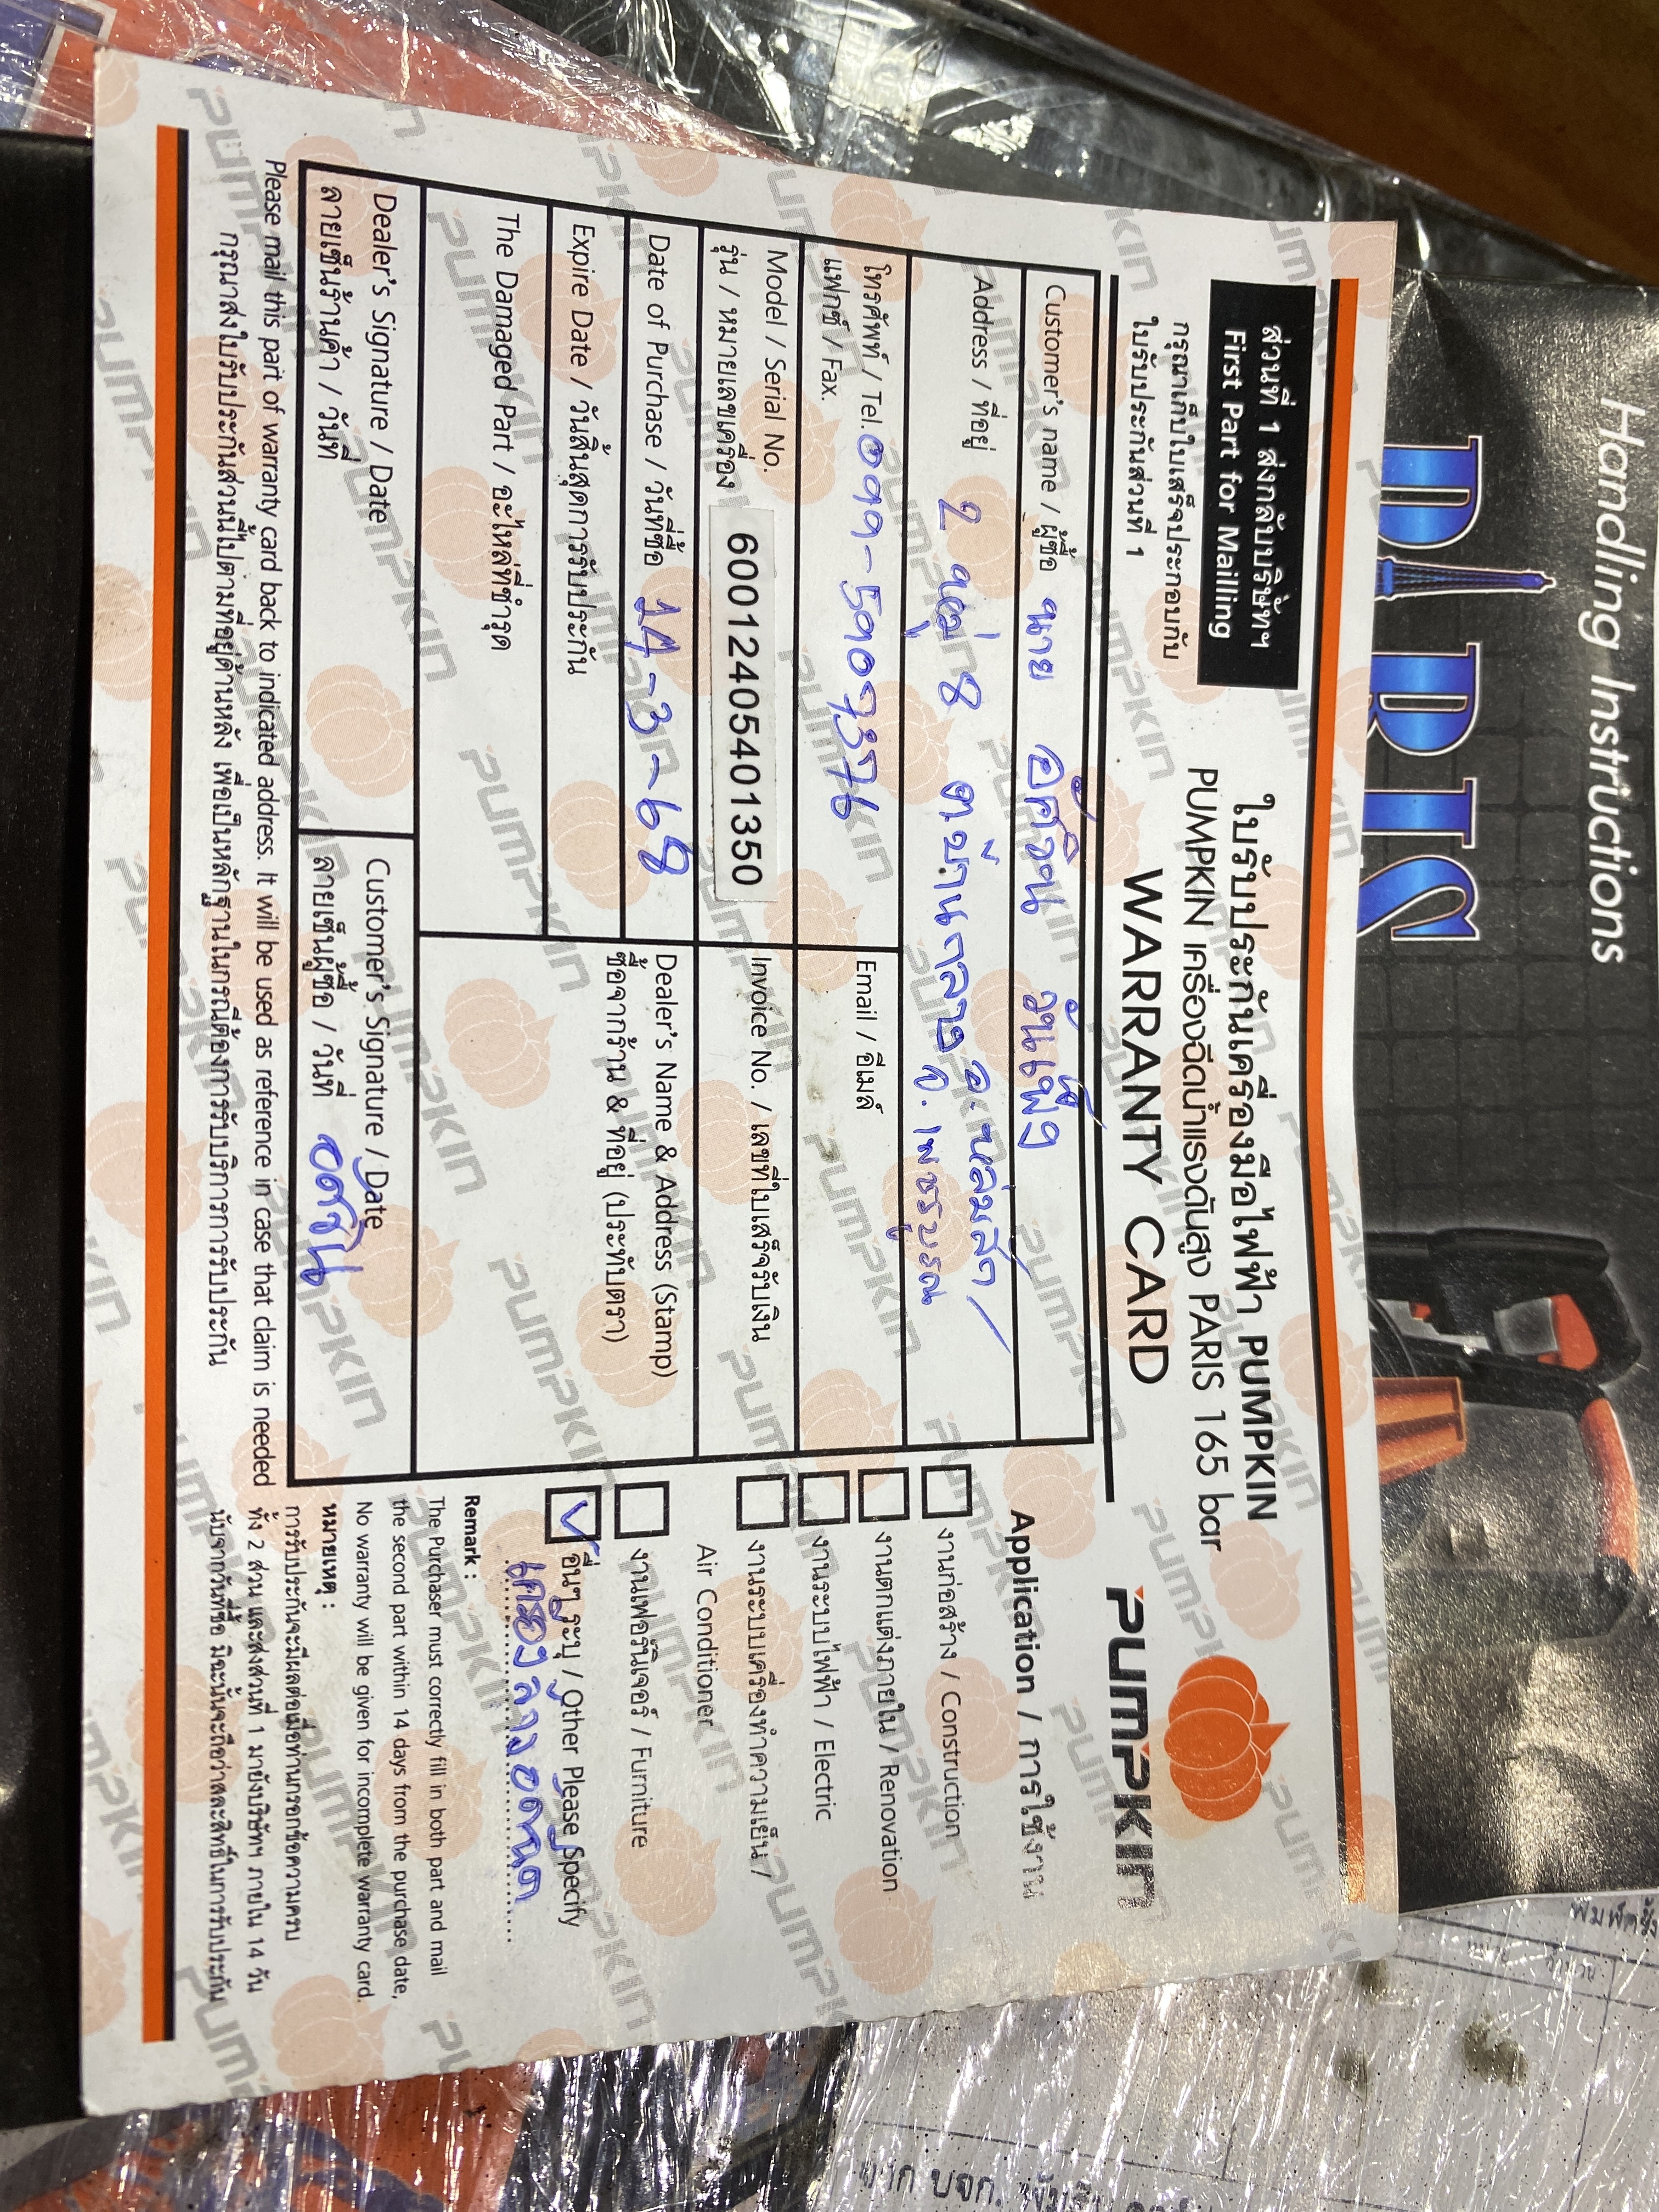 Handling Instructions
PARIS
ส่วนที่ 1 ส่งกลับบริษัทฯ
First Part for Mailling
กรุณาเก็บใบเสร็จประกอบกับ
ใบรับประกันส่วนที่ 1
ใบรับประกันเครื่องมือไฟฟ้า PUMPKIN
PUMPKIN เครื่องฉีดน้ำแรงดันสูง PARIS 165 bar
WARRANTY CARD
PUMPKIN
Customer's name / ผู้ซื้อ นาย
Address / ที่อยู่ 2 หมู่ 8 ต.บ้านกลาง อ.หล่มสัก
จ. เพชรบูรณ
โทรศัพท์ / Tel. 099-5909376
แฟกซ์ / Fax.
Email / อีเมล์
Model / Serial No.
รุ่น / หมายเลขเครื่อง 600124054013​50
Invoice No. / เลขที่ใบเสร็จรับเงิน
Date of Purchase / วันที่ซื้อ 14-3-68
Expire Date / วันสิ้นสุดการรับประกัน
Dealer's Name & Address (Stamp)
ซื้อจากร้าน & ที่อยู่ (ประทับตรา)
The Damaged Part / อะไหล่ที่ชำรุด
Dealer's Signature / Date
ลายเซ็นร้านค้า / วันที่
Customer's Signature / Date
ลายเซ็นผู้ซื้อ / วันที่
Please mail this part of warranty card back to indicated address. It will be used as reference in case that claim is needed
กรุณาส่งใบรับประกันส่วนนี้ไปตามที่อยู่ด้านหลัง เพื่อเป็นหลักฐานในกรณีต้องการรับบริการการรับประกัน
Application / การใช้งาน
งานก่อสร้าง / Construction
งานตกแต่งภายใน / Renovation
งานระบบไฟฟ้า / Electric
งานระบบเครื่องทำความเย็น /
Air Conditioner
งานเฟอร์นิเจอร์ / Furniture
อื่นๆ ระบุ / Other Please Specify
Remark :
The Purchaser must correctly fill in both part and mail
the second part within 14 days from the purchase date,
No warranty will be given for incomplete warranty card.
หมายเหตุ :
การรับประกันจะมีผลต่อเมื่อท่านกรอกข้อความครบ
ทั้ง 2 ส่วน และส่งส่วนที่ 1 มายังบริษัทฯ ภายใน 14 วัน
นับจากวันที่ซื้อ มิฉะนั้นจะถือว่าสละสิทธิ์ในการรับประกัน